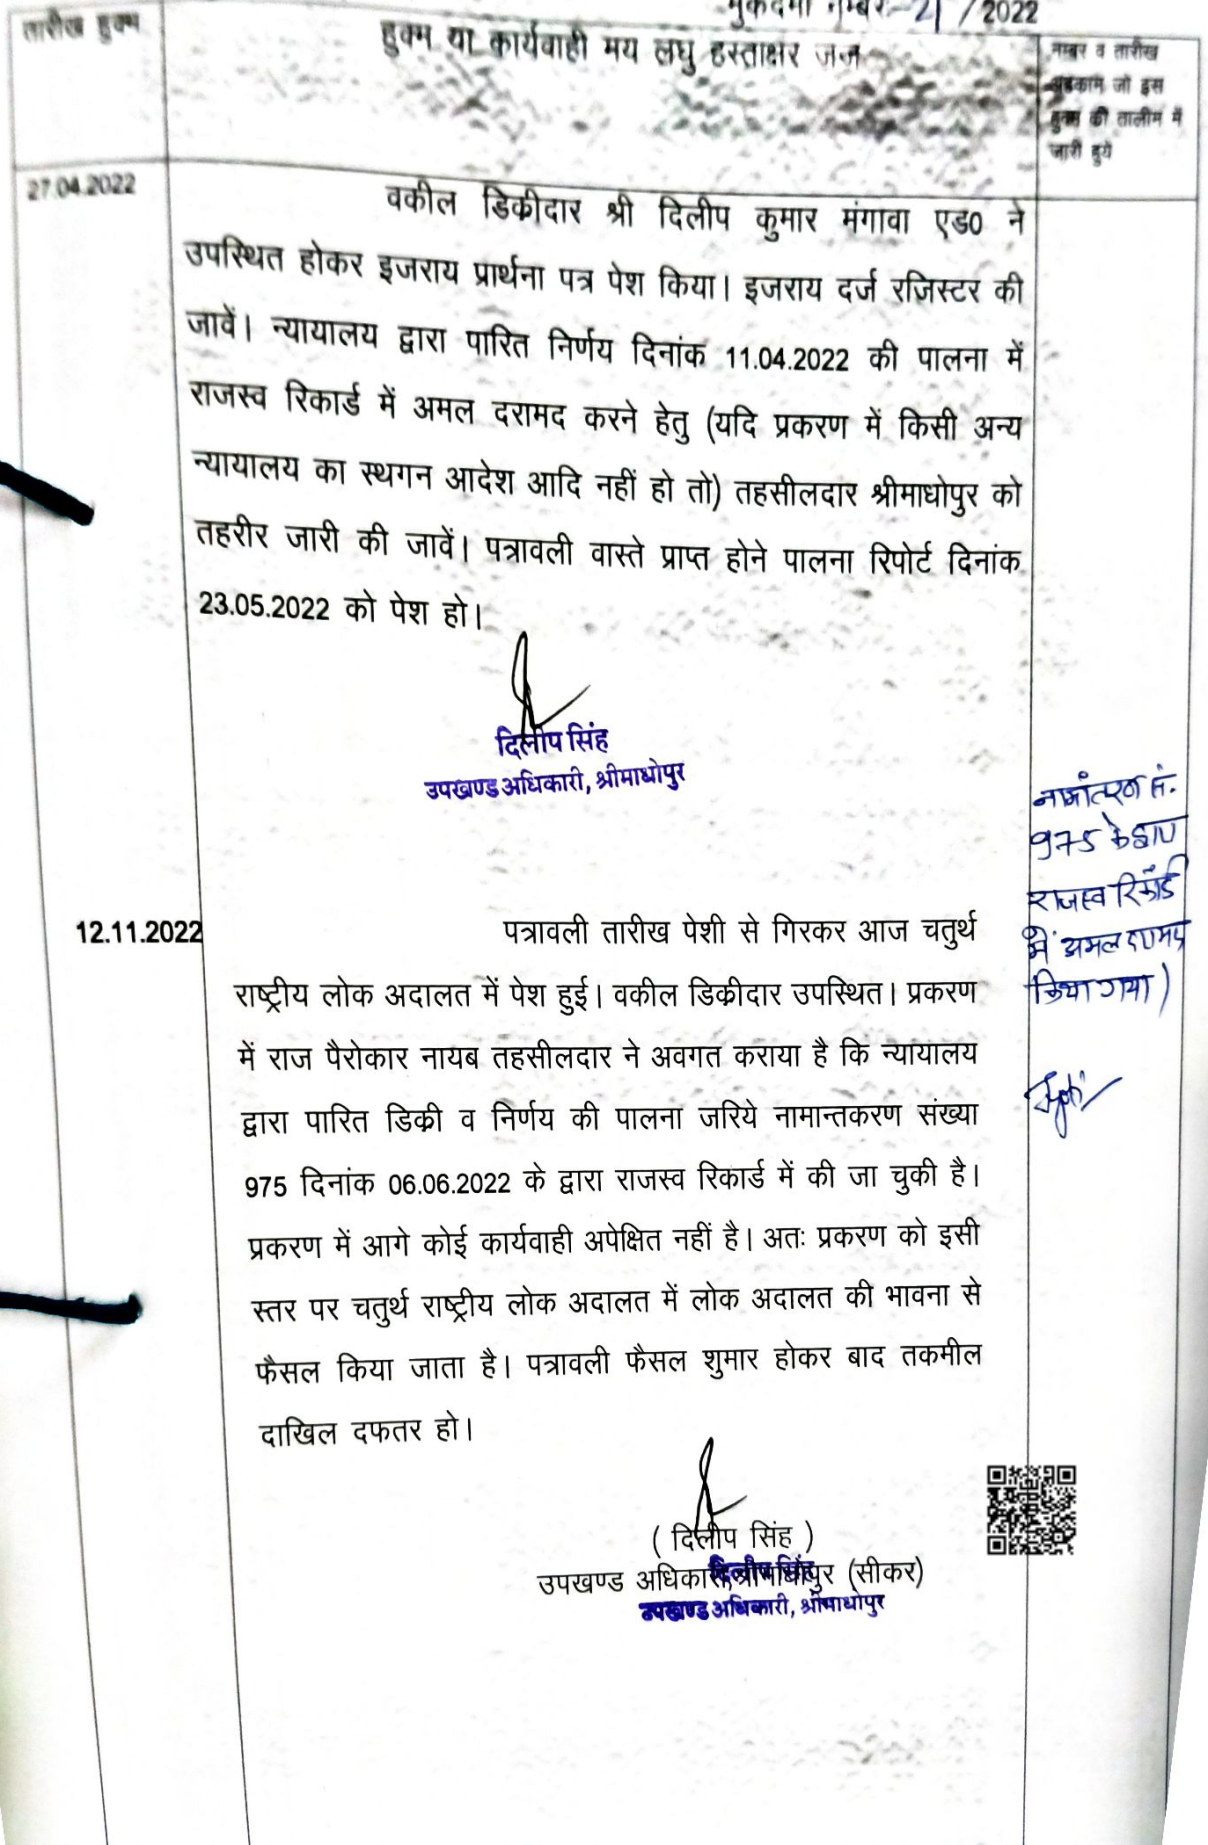 मुकदमा नम्बर:-21/2022
तारीख हुक्म
हुक्म या कार्यवाही मय लघु हस्ताक्षर जज
नम्बर व तारीख
अहकाम जो इस
हुक्म की तालीम में
जारी हुये
27.04.2022
वकील डिकीदार श्री दिलीप कुमार मंगावा एड0 ने
उपस्थित होकर इजराय प्रार्थना पत्र पेश किया। इजराय दर्ज रजिस्टर की
जावें। न्यायालय द्वारा पारित निर्णय दिनांक 11.04.2022 की पालना में
राजस्व रिकार्ड में अमल दरामद करने हेतु (यदि प्रकरण में किसी अन्य
न्यायालय का स्थगन आदेश आदि नहीं हो तो) तहसीलदार श्रीमाधोपुर को
तहरीर जारी की जावें। पत्रावली वास्ते प्राप्त होने पालना रिपोर्ट दिनांक
23.05.2022 को पेश हो।
दिलीप सिंह
उपखण्ड अधिकारी, श्रीमाधोपुर
नामांतरण सं.
975 के द्वारा
राजस्व रिकॉर्ड
में अमल दरामद
किया गया)
12.11.2022
पत्रावली तारीख पेशी से गिरकर आज चतुर्थ
राष्ट्रीय लोक अदालत में पेश हुई। वकील डिकीदार उपस्थित। प्रकरण
में राज पैरोकार नायब तहसीलदार ने अवगत कराया है कि न्यायालय
द्वारा पारित डिक्री व निर्णय की पालना जरिये नामान्तकरण संख्या
975 दिनांक 06.06.2022 के द्वारा राजस्व रिकार्ड में की जा चुकी है।
प्रकरण में आगे कोई कार्यवाही अपेक्षित नहीं है। अतः प्रकरण को इसी
स्तर पर चतुर्थ राष्ट्रीय लोक अदालत में लोक अदालत की भावना से
फैसल किया जाता है। पत्रावली फैसल शुमार होकर बाद तकमील
दाखिल दफतर हो।
( दिलीप सिंह )
दिलीप सिंह
उपखण्ड अधिकारी, श्रीमाधोपुर (सीकर)
उपखण्ड अधिकारी, श्रीमाधोपुर